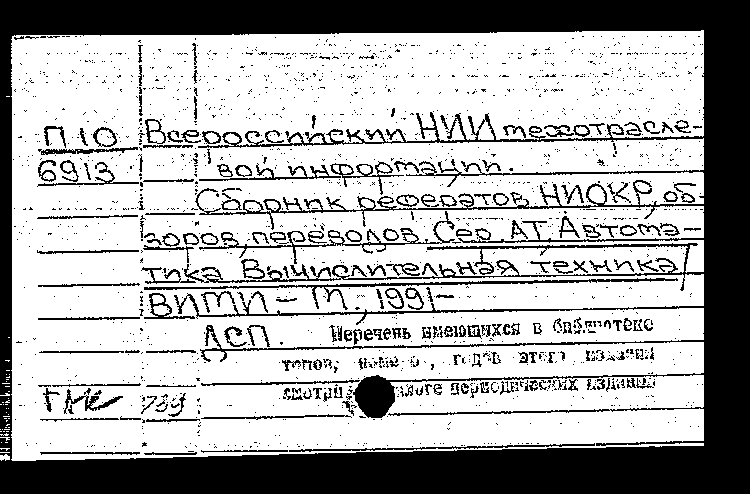 П10 Всероссийский НИИ межотрасле-
6913 вой информации.
Сборник рефератов НИОКР, об-
зоров, переводов. Сер. АТ, Автома-
тика. Вычислительная техника /
ВИМИ. - М., 1991-
ДСП. Перечень имеющихся в библиотеке
томов, номеров, годов этого издания
смотри каталоге периодических изданий
789